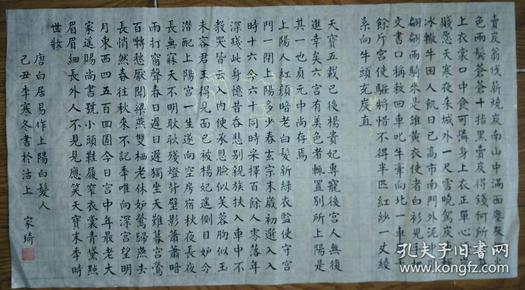 賣炭翁伐薪燒炭南山中滿面塵灰煙火
色兩鬢蒼蒼十指黑賣炭得錢何所營身
上衣裳口中食可憐身上衣正單心憂炭
賤愿天寒夜來城外一尺雪曉駕炭車輾
冰轍牛困人飢日已高市南門外泥中歇
翩翩兩騎來是誰黃衣使者白衫兒手把
文書口稱敕回車叱牛牽向北一車炭千
餘斤宮使驅將惜不得半匹紅紗一丈綾
系向牛頭充炭直
天寶五載已後楊貴妃專寵後宮人無復
進幸矣六宮有美色者輒置別所上陽是
其一也貞元中尚存焉
上陽人紅顏暗老白髮新綠衣監使守宮
門一閉上陽多少春玄宗末歲初選入入
時十六今六十同時采擇百餘人零落年
深殘此身憶昔吞悲別親族扶入車中不
教哭皆云入內便承恩臉似芙蓉胸似玉
未容君王得見面已被楊妃遙側目妒令
潛配上陽宮一生遂向空房宿秋夜長夜
長無寐天不明耿耿殘燈背壁影蕭蕭暗
雨打窗聲春日遲日遲獨坐天難暮宮鶯
百轉愁厭聞梁燕雙棲老休妒鶯歸燕去
長悄然春往秋來不記季唯向深宮望明
月東西四五百回圓今日宮中年最老大
家遙賜尚書號小頭鞋履窄衣裳青黛點
眉眉細長外人不見見應笑天寶末季時
世妝
唐白居易作上陽白髮人
己丑季寒冬書於沽上 家琦
孔夫子旧书网
www.kongfz.com